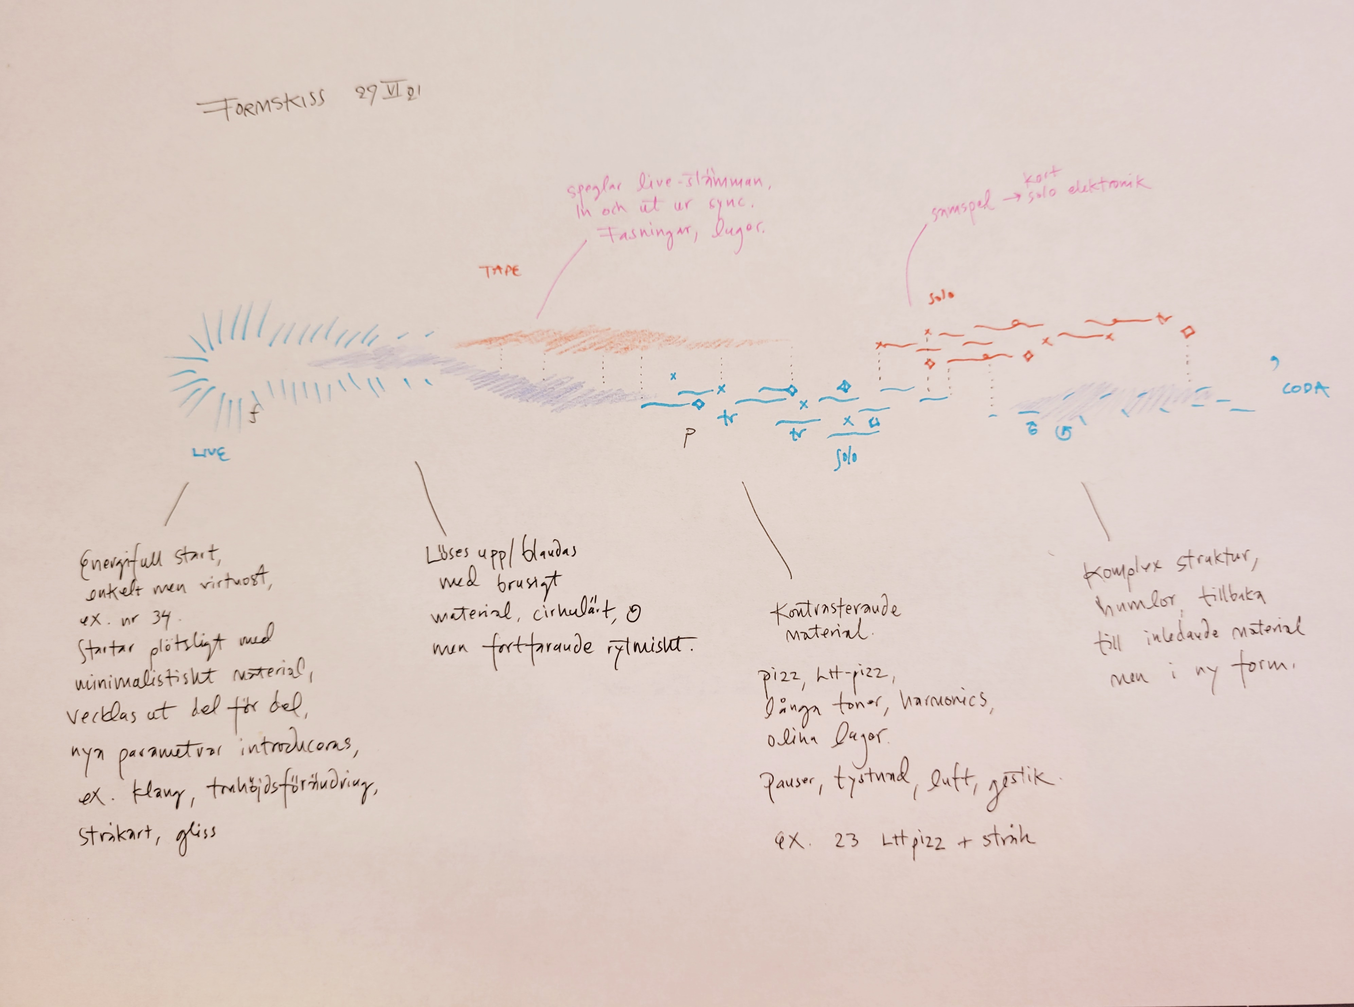 FORMSKISS 29 VI 21
speglar live-stämman,
In och ut ur sync.
Fasningar, lager.
kort
samspel → solo elektronik
TAPE
solo
f
LIVE
p
tr
tr
solo
, CODA
Energifull start,
enkelt men virtuost,
ex. nr 34.
Startar plötsligt med
minimalistiskt material,
vecklas ut del för del,
nya parametrar introduceras,
ex. klang, tonhöjdsförändring,
stråkart, gliss
Löses upp/blandas
med brusigt
material, cirkulärt,
men fortfarande rytmiskt.
Kontrasterande
material.
pizz, LH-pizz,
långa toner, harmonics,
olika lager.
Pauser, tystnad, luft, gestik.
ex. 23 LH pizz + stråk
Komplex struktur,
humlor, tillbaka
till inledande material
men i ny form.